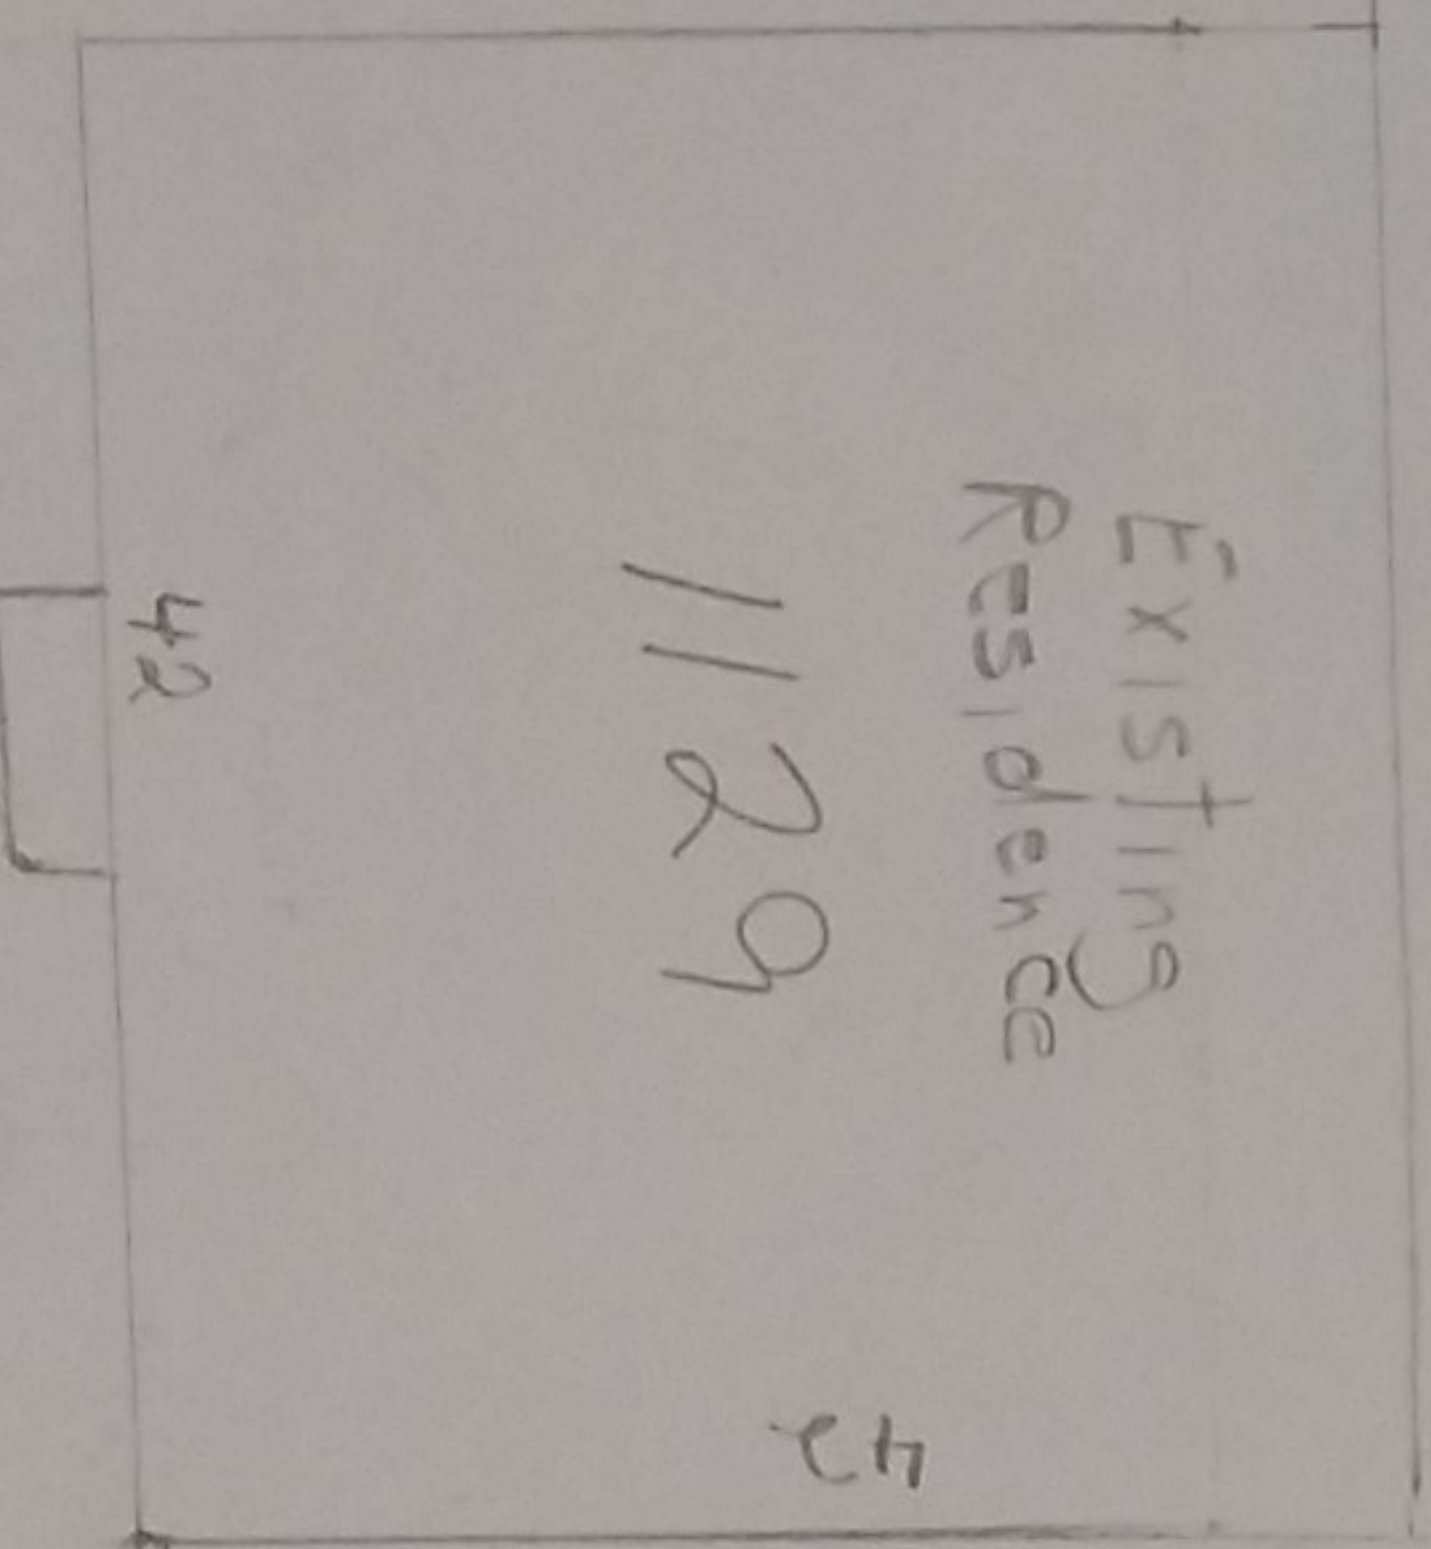 Existing
Residence
1129
42
42